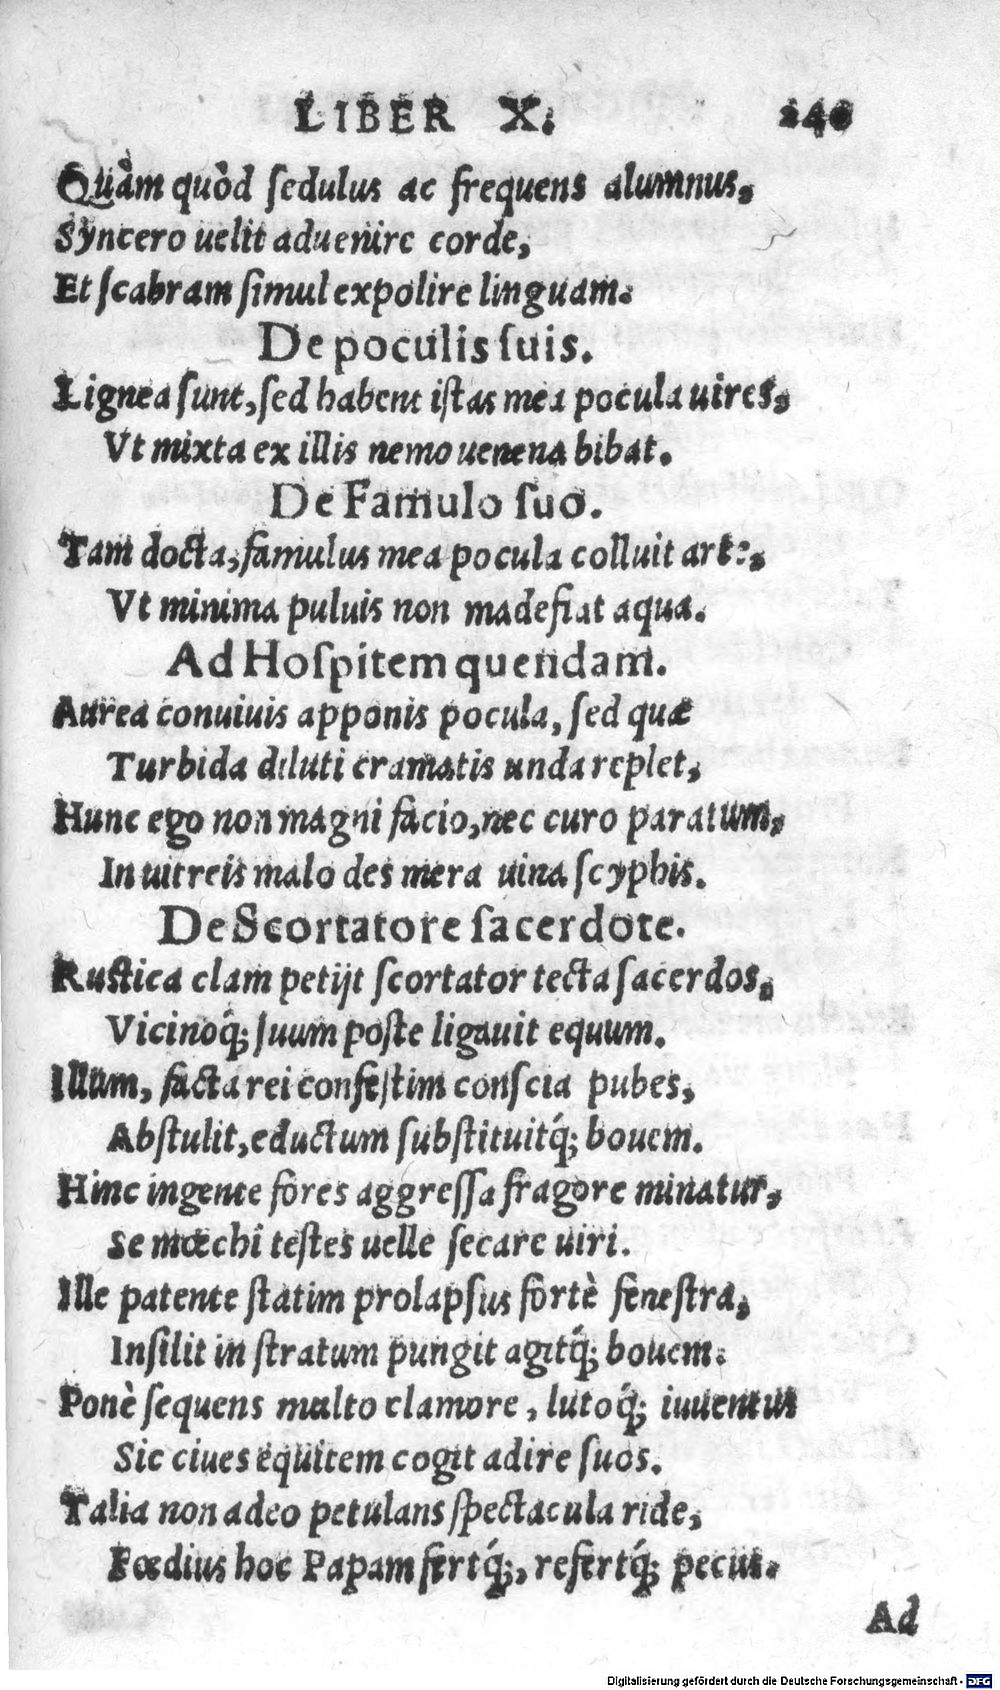 LIBER X. 240
Quàm quòd ſedulus ac frequens alumnus,
Syncero uelit aduenire corde,
Et ſcabram ſimul expolire linguam.
De poculis ſuis.
Lignea ſunt, ſed habent iſtas mea pocula uires,
Vt mixta ex illis nemo uenena bibat.
De Famulo ſuo.
Tam docta, famulus mea pocula colluit arte,
Vt minima puluis non madefiat aqua.
Ad Hoſpitem quendam.
Aurea conuiuis apponis pocula, ſed quæ
Turbida diluti cramatis unda replet,
Hunc ego non magni facio, nec curo paratum,
In uitreis malo des mera uina ſcyphis.
De Scortatore ſacerdote.
Ruſtica clam petijt ſcortator tecta ſacerdos,
Vicinoq́; ſuum poſte ligauit equum.
Illum, facta rei confeſtim conſcia pubes,
Abſtulit, eductum ſubſtituitq́; bouem.
Hinc ingente fores aggreſſa fragore minatur,
Se mœchi teſtes uelle ſecare uiri.
Ille patente ſtatim prolapſus fortè feneſtra,
Inſilit in ſtratum pungit agitq́; bouem.
Ponè ſequens multo clamore, lutoq́; iuuentus
Sic ciues equitem cogit adire ſuos.
Talia non adeo petulans ſpectacula ride,
Fœdius hoc Papam fertq́;, refertq́; pecus.
Ad
Digitalisierung gefördert durch die Deutsche Forschungsgemeinschaft - DFG